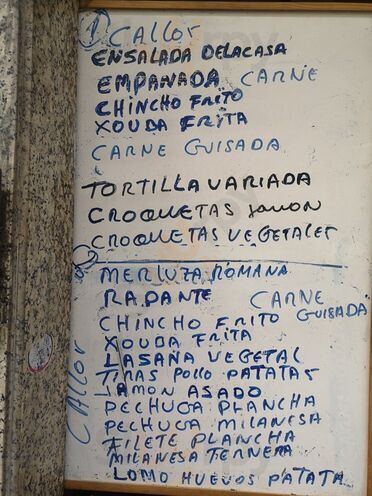 1 CALLOS
ENSALADA DELACASA
EMPANADA CARNE
CHINCHO FRITO
XOUBA FRITA
CARNE GUISADA
TORTILLA VARIADA
CROQUETAS JAMON
CROQUETAS VEGETALES
MERLUZA ROMANA
RAPANTE CARNE GUISADA
CHINCHO FRITO
XOUBA FRITA
LASAÑA VEGETAL
TIRAS POLLO PATATAS
JAMON ASADO
PECHUGA PLANCHA
PECHUGA MILANESA
FILETE PLANCHA
MILANESA TERNERA
LOMO HUEVOS PATATA
CALLOS